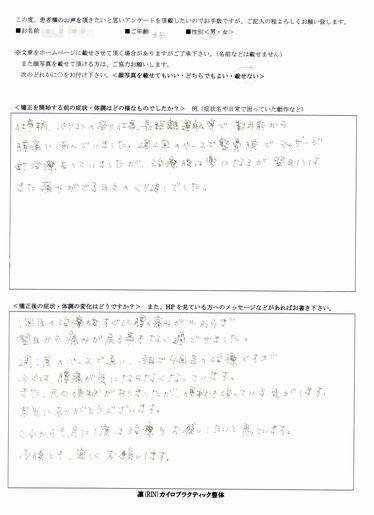 この度、患者様のお声を頂きたいと思いアンケートを頂戴したいのでお手数ですが、ご記入の程よろしくお願い致します。
■お名前 ■ご年齢 ■性別<男・女>
※文章をホームページに載せさせて頂く場合がありますがご了承下さい。(名前などは載せません)
また顔写真を載せて頂ける方は、ご協力お願いします。
次のどれかに○をお付け下さい。<顔写真を載せてもいい・どちらでもよい・載せない>
<矯正を開始する前の症状・体調はどの様なものでしたか?> 例(症状名や日常で困っていた動作など)
仕事柄、パソコンの座り仕事、長距離運転等で、数年前から
腰痛に悩んでいました。週2回のペースで整骨院でマッサージ
針治療をしていましたが、治療後は楽になるが翌日には
また痛みがでる日々のくり返しでした。
<矯正後の症状・体調の変化はどうですか?> また、HPを見ている方へのメッセージなどがあればお書き下さい。
1回目の治療後すぐに腰の痛みがやわらぎ
翌日から痛みが戻る事もなく過ごせました。
週1度のペースで通い、今日で4回目の治療ですが
今では、腰痛が気にならなくなっています。
また、元々便秘がありましたが、便秘も治っている気がします。
本当にありがとうございます。
これからも月に1度は治療をお願いしたいと思っています。
今後とも、宜しくお願いします。
凛(RIN)カイロプラクティック整体